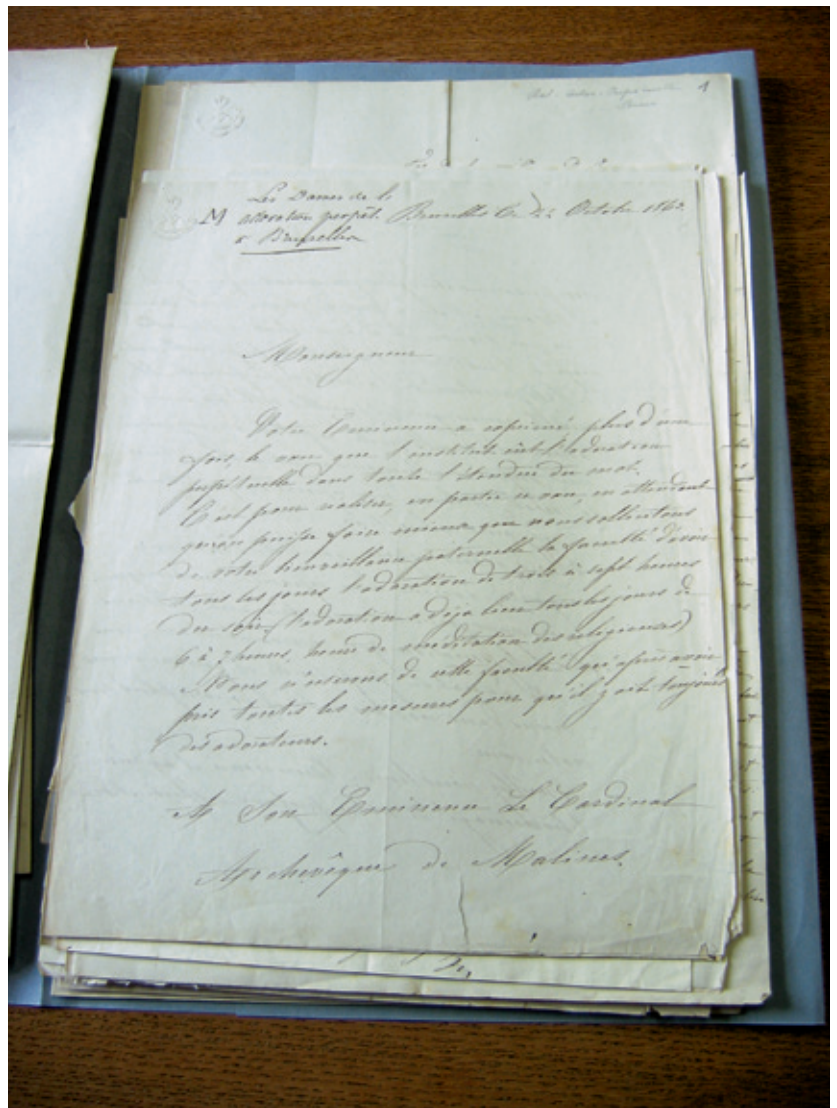 Les Dames de l'
M adoration perpét. Bruxelles le 22 Octobre 186
à Bruxelles
Monseigneur
Votre Eminence a exprimé plus d'une
fois, le vœu que l'institut eût l'adoration
perpétuelle dans toute l'étendue du mot.
C'est pour réaliser, en partie ce vœu, en attendant
qu'on puisse faire mieux, que nous sollicitons
de votre bienveillance paternelle la faculté d'avoir
tous les jours l'adoration de trois à sept heures
du soir (l'adoration a déja lieu tous les jours de
6 à 7 heures, heure de méditation des religieuses)
Nous n'userons de cette faculté qu'après avoir
pris toutes les mesures pour qu'il y ait toujours
des adorateurs.
A Son Eminence Le Cardinal
Archevêque de Malines.